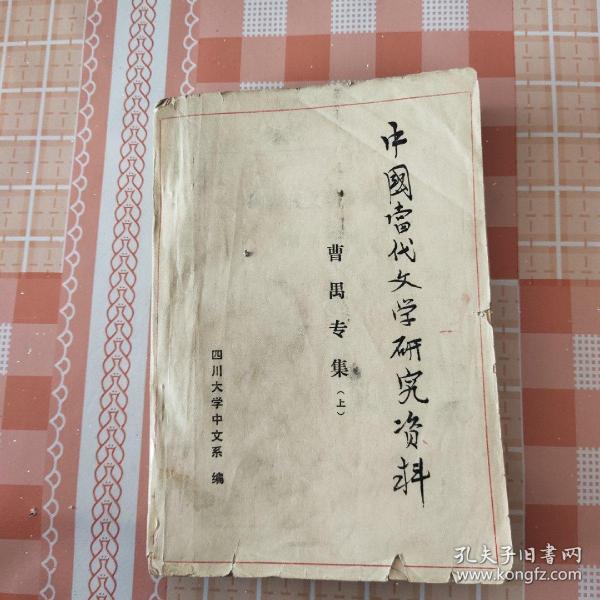 中國當代文学研究资料
曹禺专集(上)
四川大学中文系 编
孔夫子旧书网
www.kongfz.com